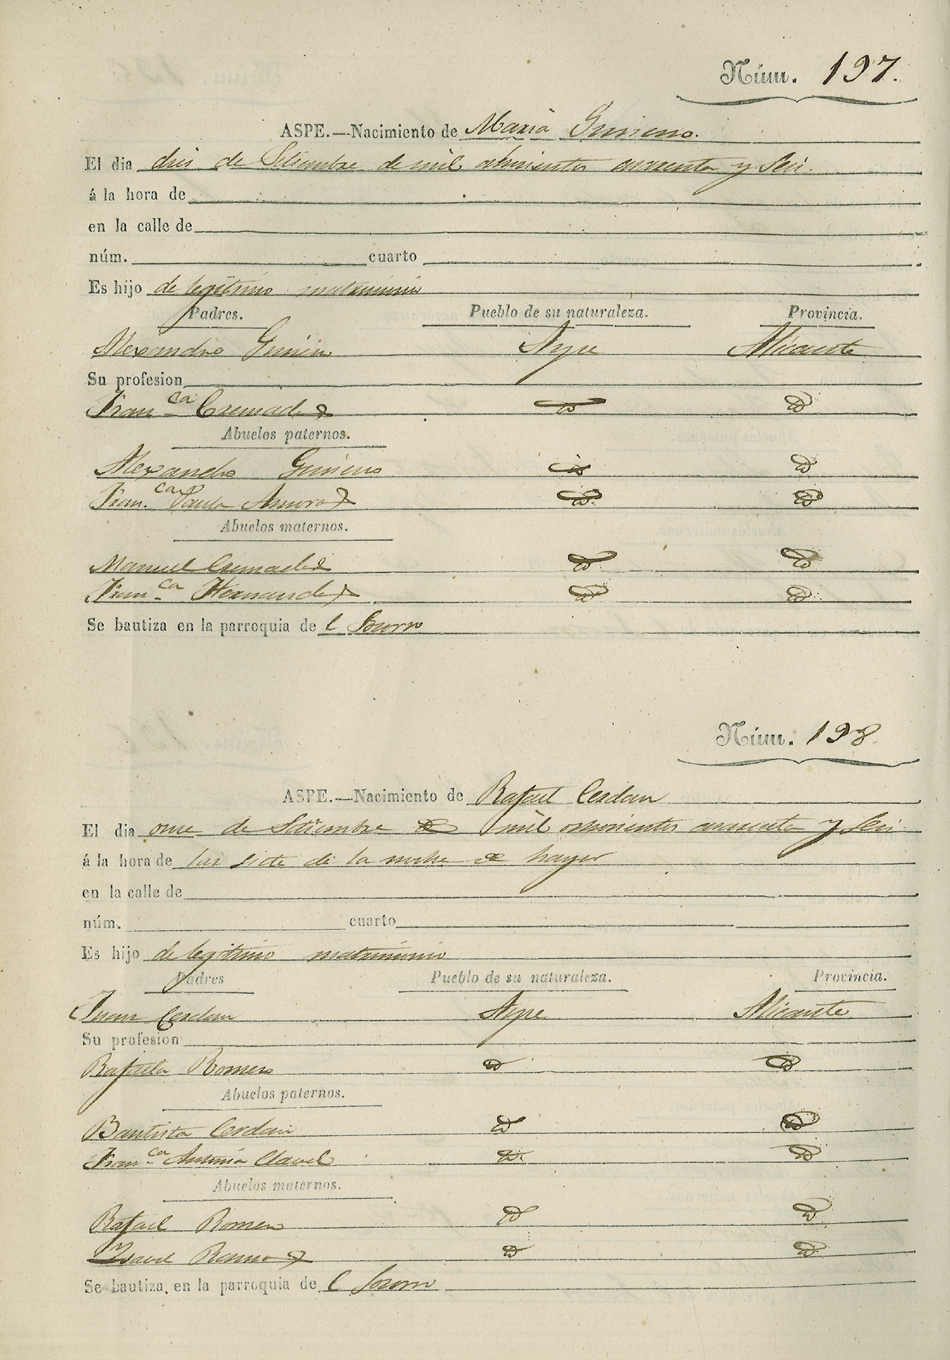 Núm. 197.
ASPE.—Nacimiento de Maria Gimeno.
El dia dies de Setiembre de mil ochosientos cuarenta y Seis.
á la hora de
en la calle de
núm. cuarto
Es hijo de legitimo matrimonio
Padres. Pueblo de su naturaleza. Provincia.
Alexandro Gimeno Aspe Alicante
Su profesion
Fran.ca Cremades id id
Abuelos paternos.
Alexandro Gimeno id id
Fran.ca Paula Amoros id id
Abuelos maternos.
Manuel Cremades id id
Fran.ca Hernandez id id
Se bautiza en la parroquia de l Socorro
Núm. 198.
ASPE.—Nacimiento de Rafael Cerdan
El dia onse de Setiembre de mil ochosientos cuarenta y Seis
á la hora de las siete de la noche de hayer
en la calle de
núm. cuarto
Es hijo de legitimo matrimonio
Padres Pueblo de su naturaleza. Provincia.
Juan Cerdan Aspe Alicante
Su profesion
Rafaela Romero id id
Abuelos paternos.
Bautista Cerdan id id
Fran.ca Antonia Clavel id id
Abuelos maternos.
Rafael Romero id id
Ramos id id
Se bautiza en la parroquia de l Socorro